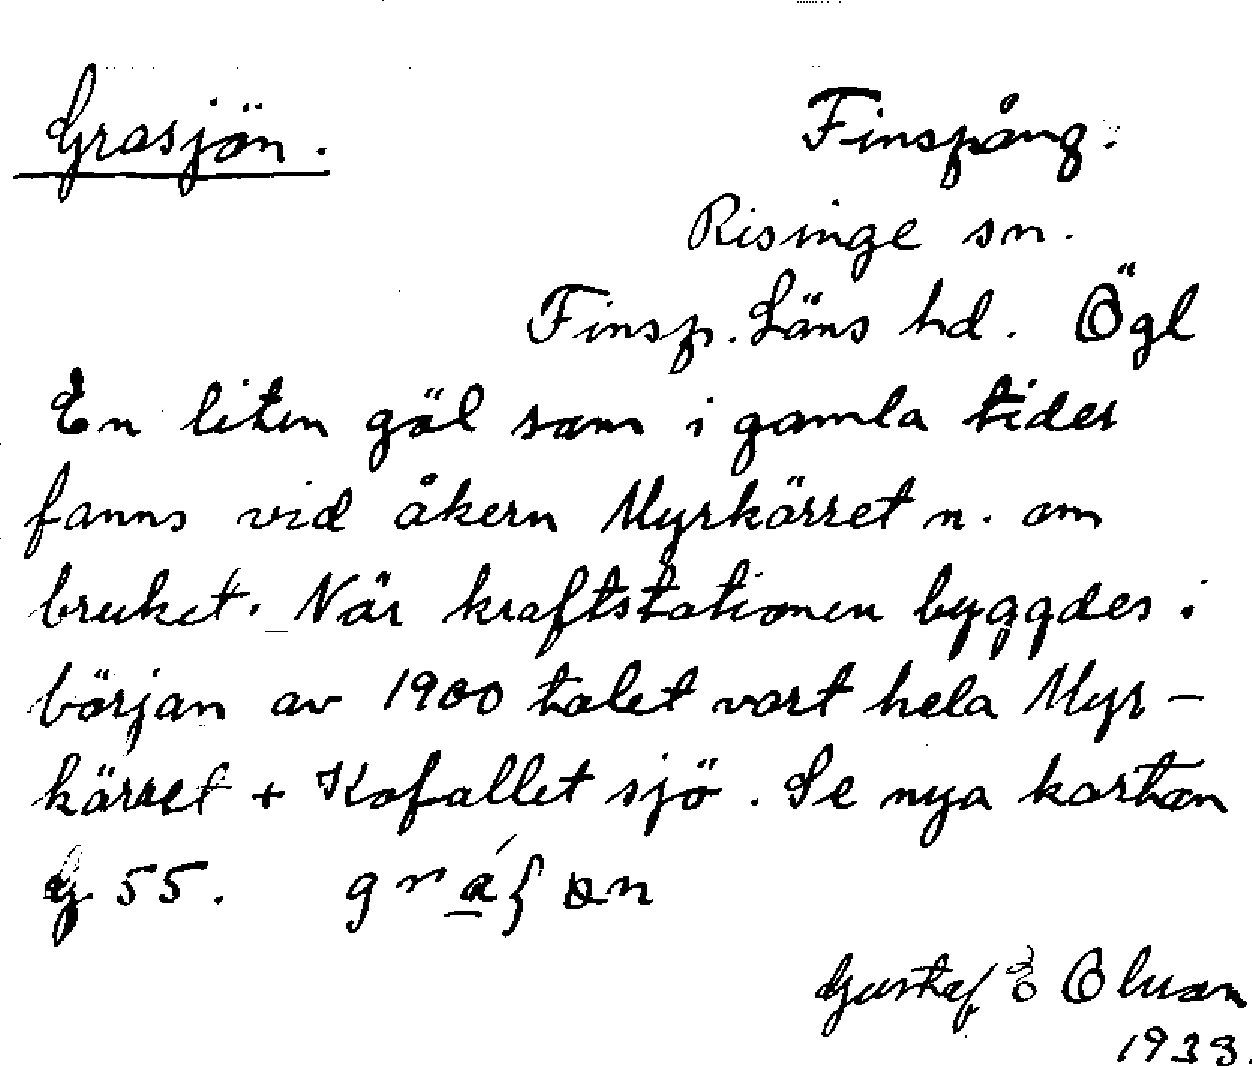 Grasjön.
Finspång.
Risinge sn.
Finsp. Läns hd. Ögl
En liten göl som i gamla tider
fanns vid åkern Myrkärret n. om
bruket. När kraftstationen byggdes i
början av 1900 talet vart hela Myr-
kärret + Kofallet sjö. Se nya kartan
G 55.
Gustaf E Olsson
1933.